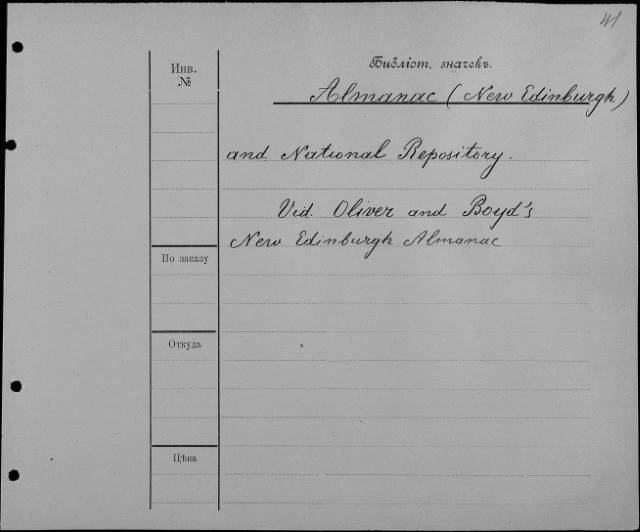 41
Библiот. значекъ.
Инв.
№
Almanac (New Edinburgh)
and National Repository.
Vid. Oliver and Boyd's
New Edinburgh Almanac
По заказу
Откуда
Цѣна